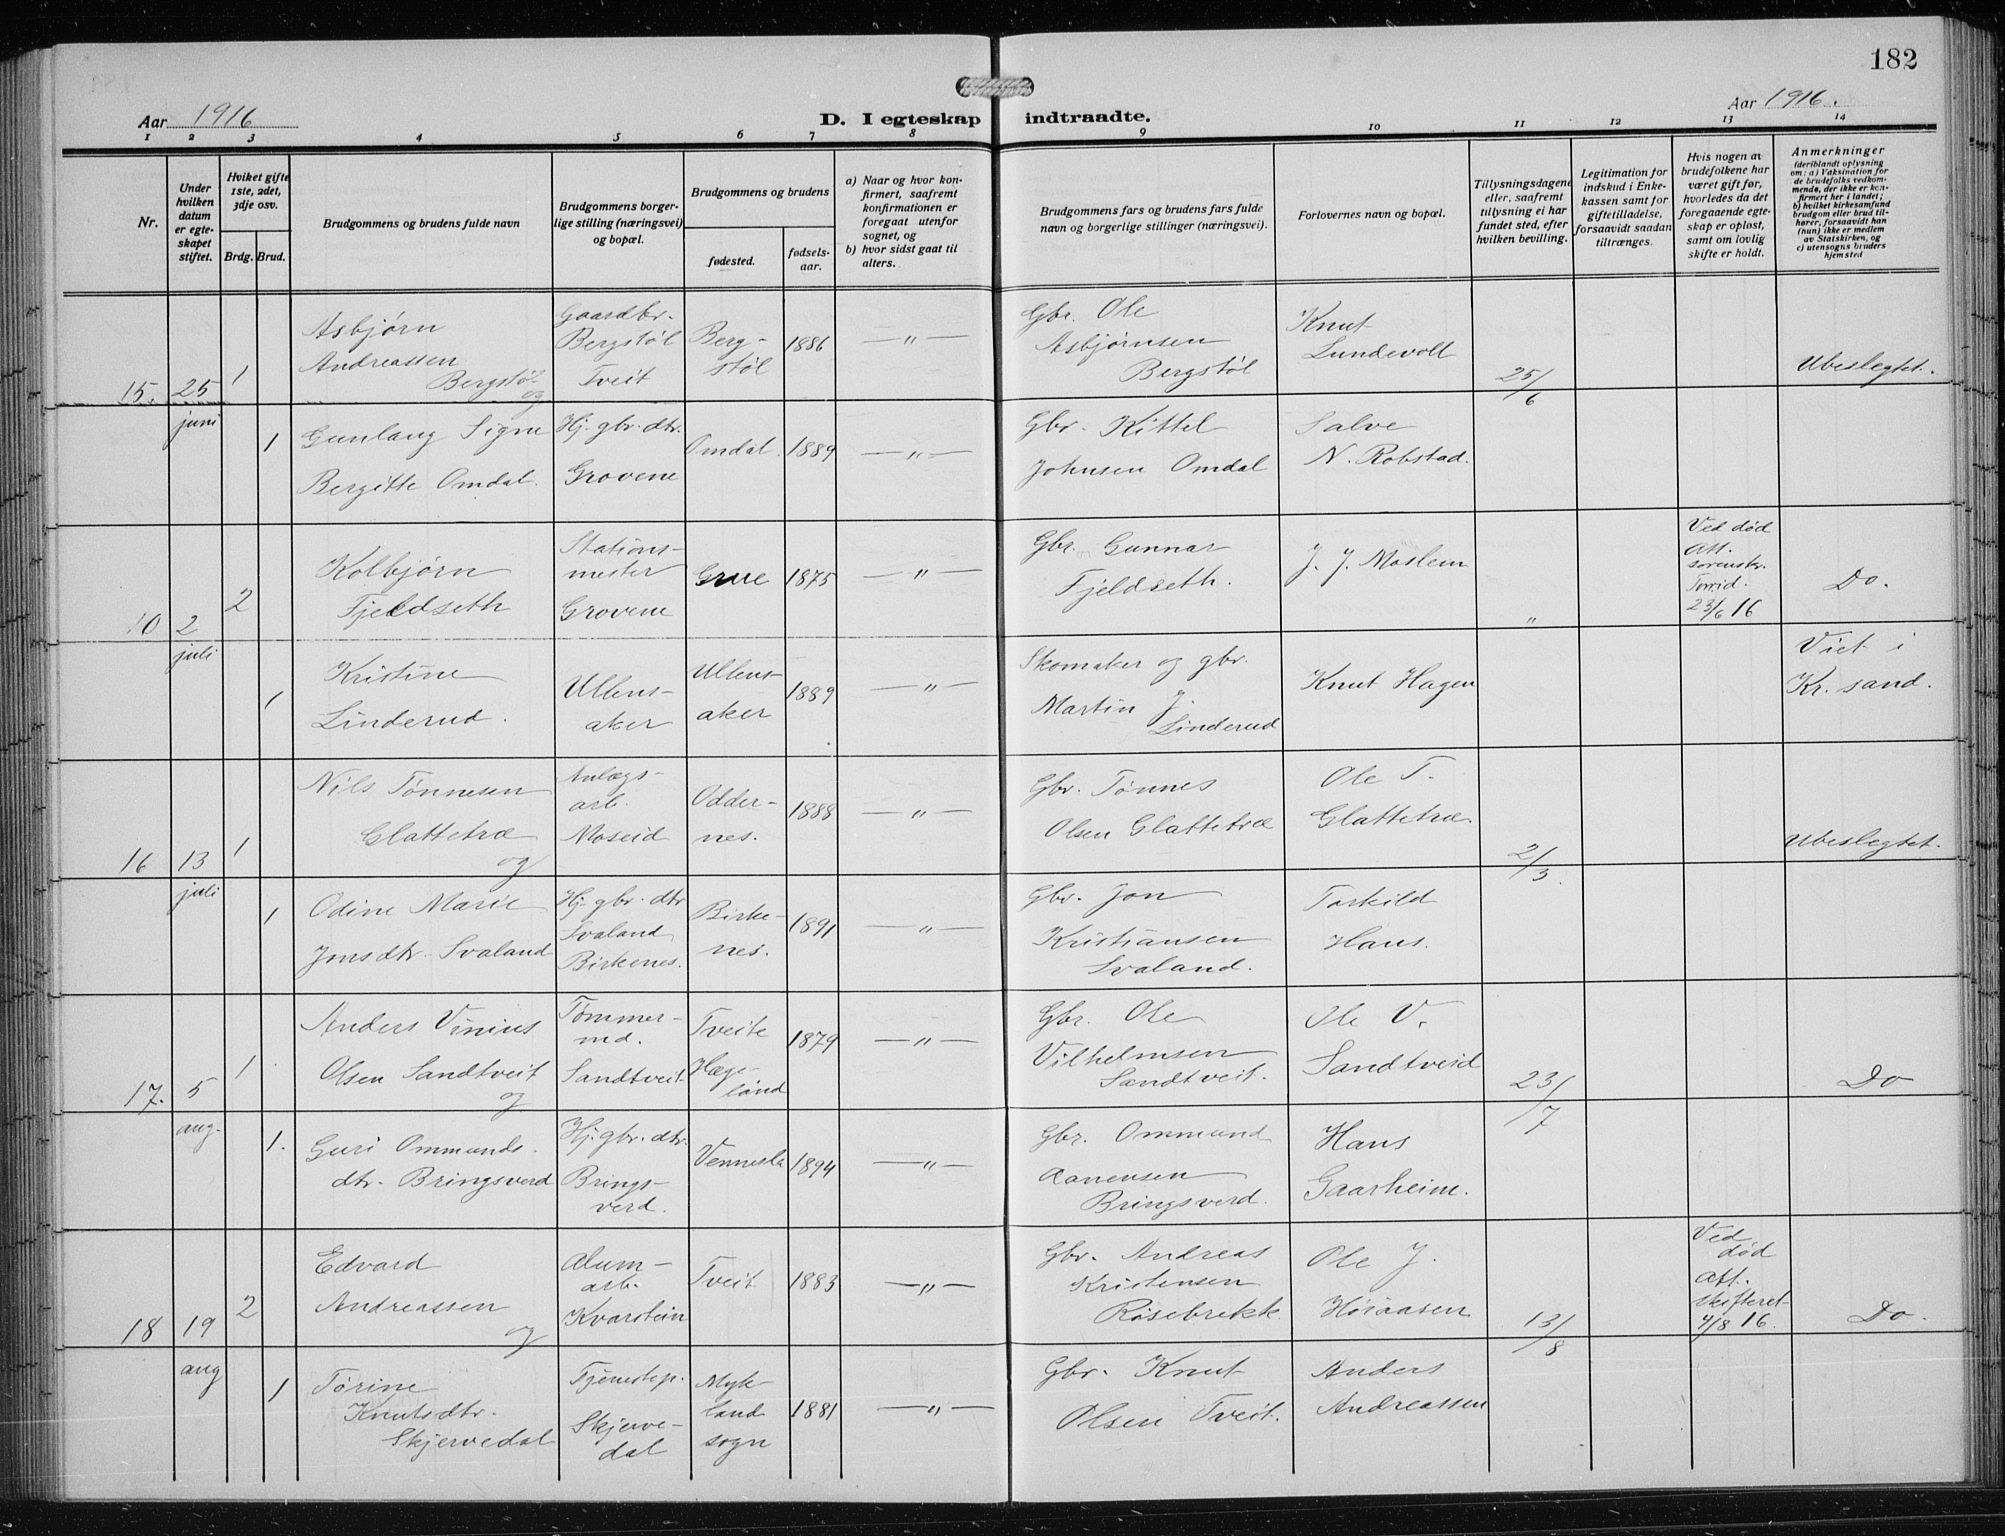 182
Aar 1916
D. I egteskap indtraadte.
Aar 1916.
1 2 3 4 5 6 7 8 9 10 11 12 13 14
Nr.
Under hvilken datum er egteskapet stiftet.
Hviket gifte 1ste, 2det, 3dje osv.
Brdg. Brud.
Brudgommens og brudens fulde navn
Brudgommens borgerlige stilling (næringsvei) og bopæl.
Brudgommens og brudens
fødested.
fødselsaar.
a) Naar og hvor konfirmert, saafremt konfirmationen er foregaat utenfor sognet, og
b) hvor sidst gaat til alters.
Brudgommens fars og brudens fars fulde navn og borgerlige stillinger (næringsvei).
Forlovernes navn og bopæl.
Tillysningsdagene eller, saafremt tillysning ei har fundet sted, efter hvilken bevilling.
Legitimation for indskud i Enkekassen samt for giftetilladelse, forsaavidt saadan tiltrænges.
Hvis nogen av brudefolkene har været gift før, hvorledes da det foregaaende egteskap er opløst, samt om lovlig skifte er holdt.
Anmerkninger (deriblandt oplysning om: a) Vaksination for de brudefolks vedkommende, der ikke er konfirmert her i landet; b) hvilket kirkesamfund brudgom eller brud tilhører, forsaavidt han (hun) ikke er medlem av Statskirken, og c) utensogns bruders hjemsted
15. 25 juni
1
Asbjørn
Andreassen
Bergstøl
og
Gaardbr.
Bergstøl
Tveit
Berg-
støl
1886
— " —
Gbr. Ole
Asbjørnsen
Bergstøl
Knut
Lundevolt
25/6
Ubeslegtet.
1
Gunlaug Signe
Bergitte Omdal.
Hj. gbr. dtr.
Grovene
Omdal.
1889
— " —
Gbr. Kittel
Johnsen Omdal
Salve
N. Robstad.
10 2 juli
2
Kolbjørn
Fjeldseth
Stations-
mester
Grovene
Grue
1875
— " —
Gbr. Gunnar
Fjeldseth.
J. J. Moslem
"
Ved død
Att.
sorenskr.
23/6 16
Do.
1
Kristine
Linderud.
Ullens-
aker
Ullens-
aker
1889
— " —
Skomaker og gbr.
Martin J.
Linderud
Knut Hagen
Viet i
Kr. sand.
16 13 juli
1
Nils Tønnesen
Glattetræ
og
Anlægs-
arb.
Moseid
Odder-
nes.
1888
— " —
Gbr. Tønnes
Olsen Glattetræ
Ole T.
Glattetræ.
2/3.
Ubeslegtet.
1
Odine Marie
Jonsdtr. Svaland
Hj. gbr. dtr
Svaland
Birkenes.
Birke-
nes.
1891
— " —
Gbr. Jon
Kristiansen
Svaland.
Torkild
Haus.
17. 5 aug.
1
Anders Vinius
Olsen Sandtveit
og
Tømmer-
md.
Sandtveit
Tveite
Hæge-
land
1879
— " —
Gbr. Ole
Vilhelmsen
Sandtveit.
Ole V.
Sandtveid
23/7
Do
1.
Guri Ommunds.
dtr. Bringsverd
Hj. gbr. dtr.
Brings-
verd.
Vennesla
1894
— " —
Gbr. Ommund
Aanensen
Bringsverd.
Hans
Gaarheim.
18 19 aug
2
Edvard
Andreassen
og
Alum-
arb.
Kvarstein
Tveit
1883
— " —
Gbr. Andreas
Kristensen
Røsebrekk
Ole J.
Høiaasen
13/8
Ved
død
Att.
skifteret
4/8 16.
Do.
1
Tørine
Knutsdtr.
Skjervedal
Tjenestep.
Skjerve-
dal
Myk-
land
sogn
1881
— " —
Gbr. Knut
Olsen Tveit.
Anders
Andreassen